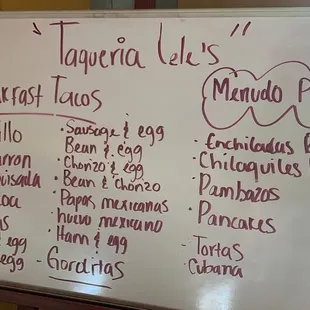 "Taqueria Lele's"
kfast Tacos
illo
arron
uisada
coa
as
& egg
egg
· Sausage & egg
Bean & egg
· Chorizo & egg
· Bean & Chorizo
· Papas mexicanas
· huevo mexicano
· Ham & egg
- Gorditas
Menudo P
· Enchiladas
· Chilaquiles
· Pambazos
· Pancakes
· Tortas
· Cubana